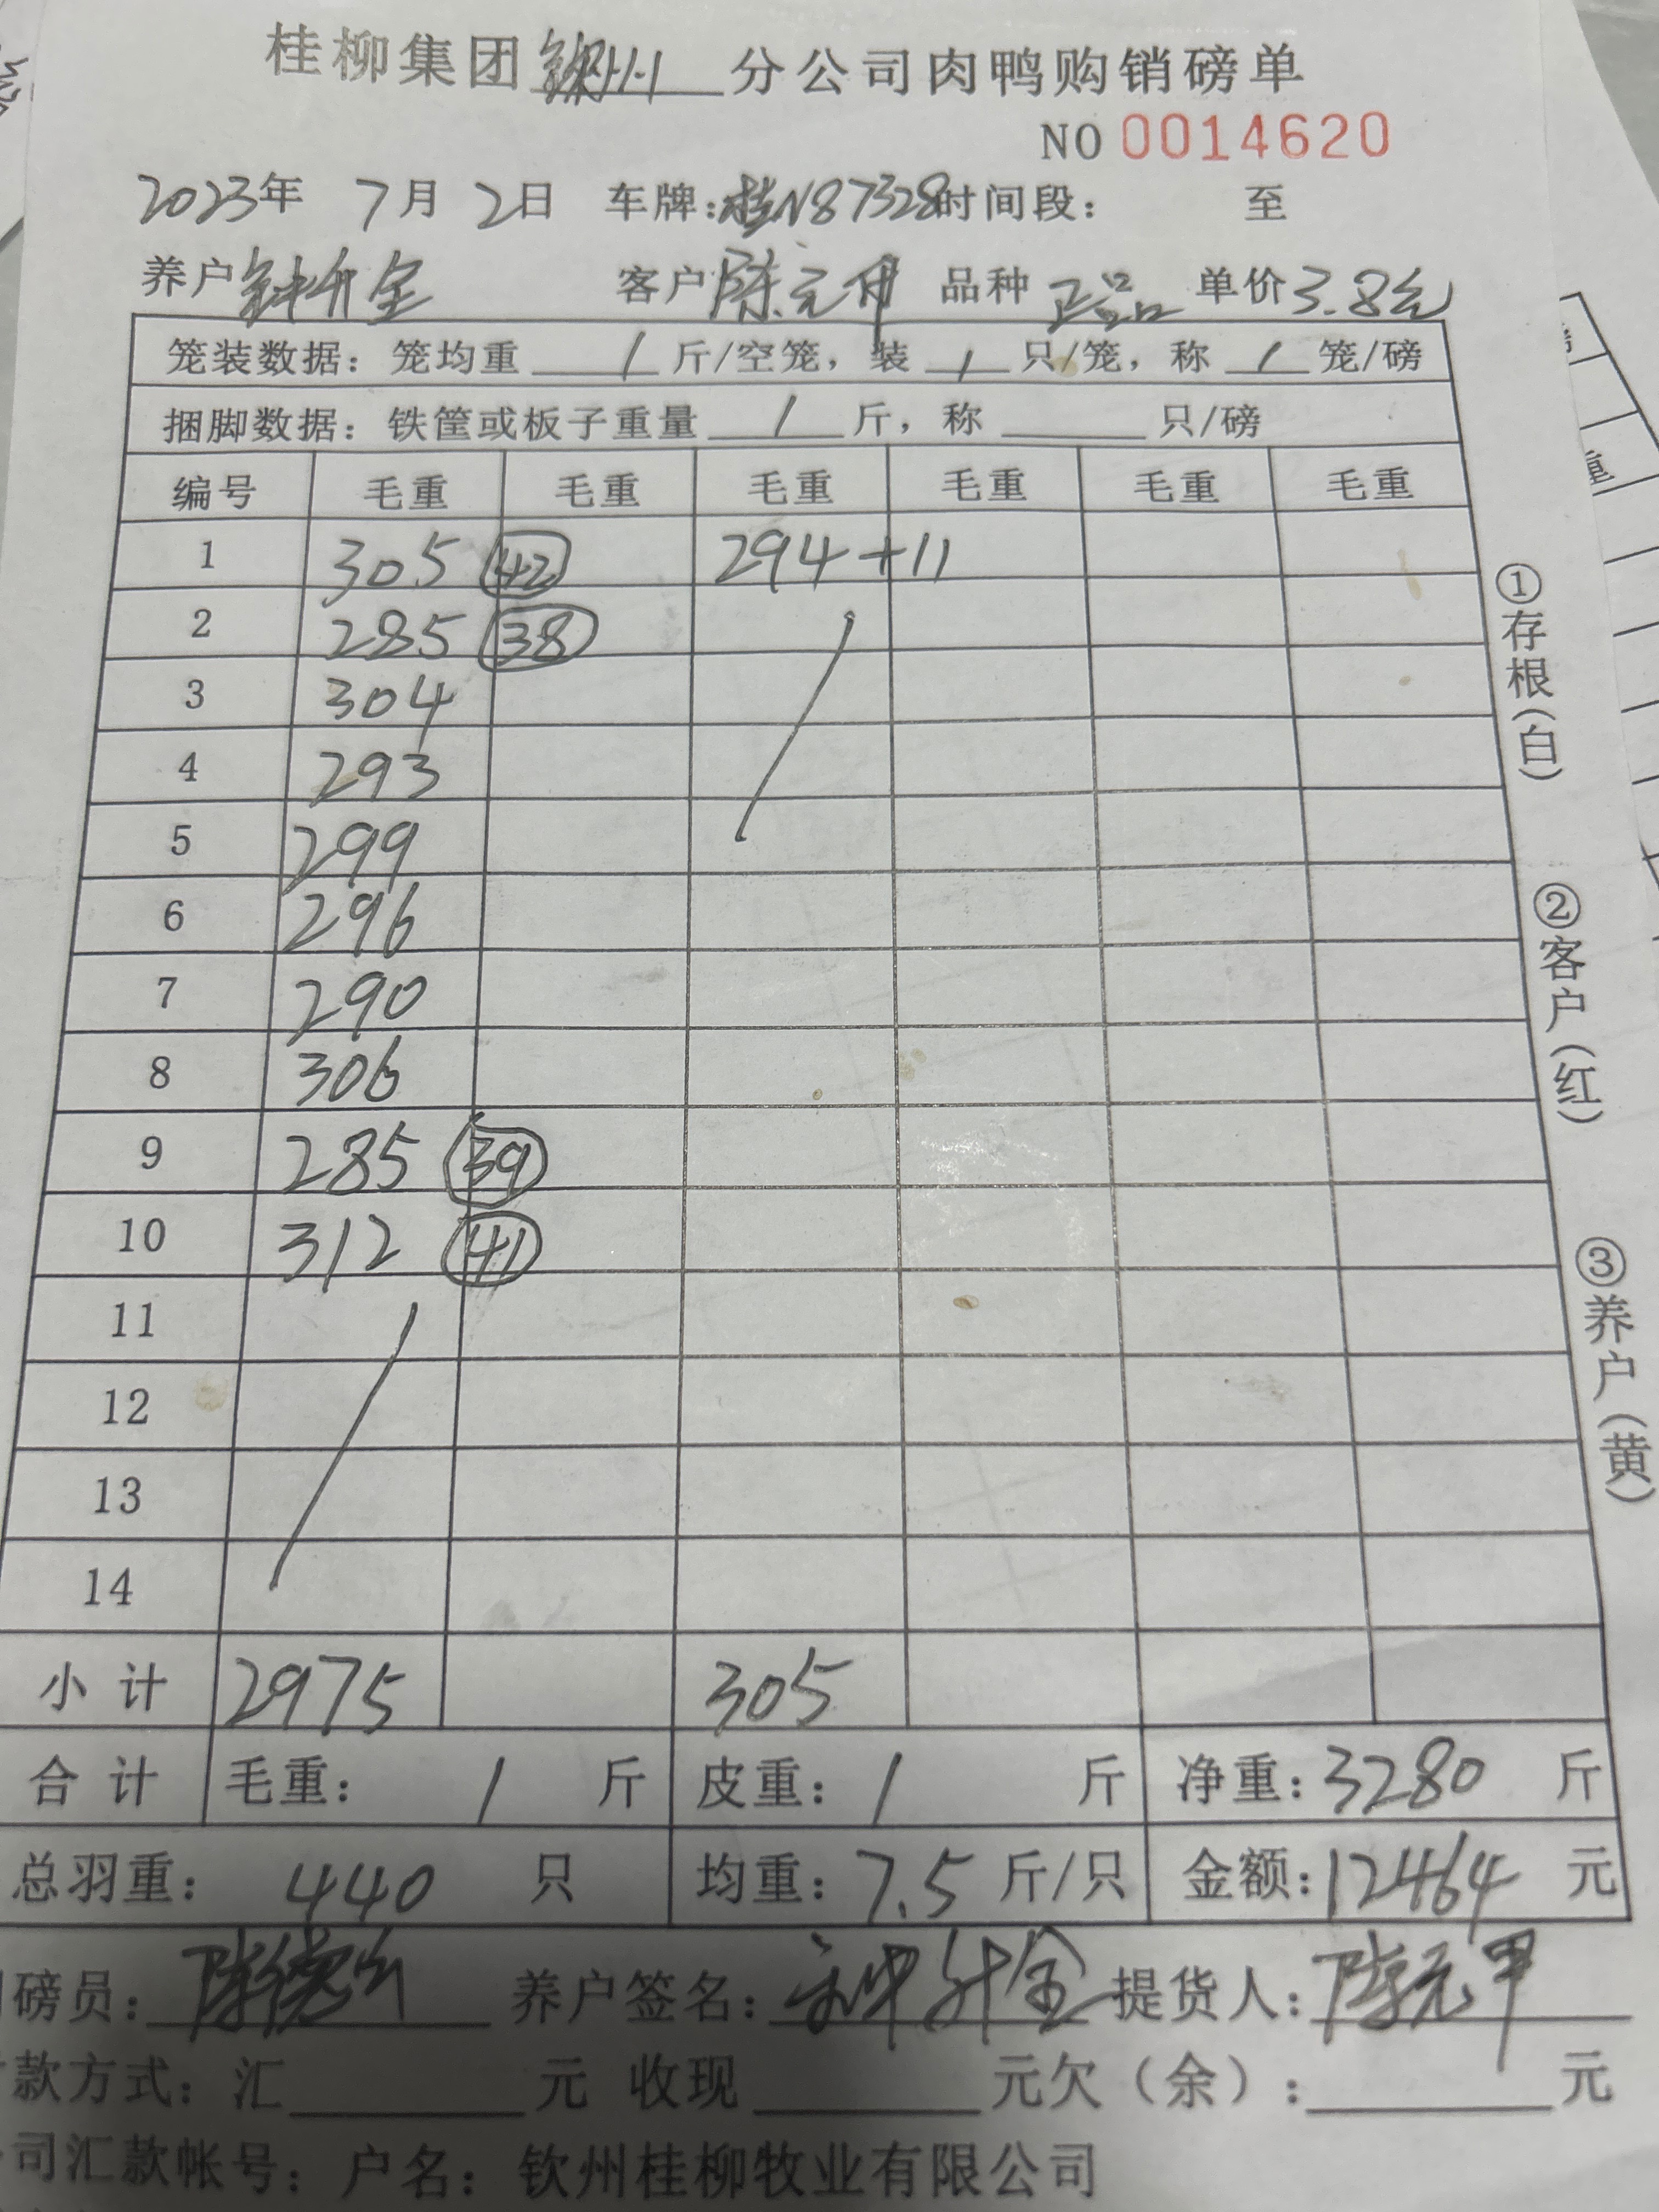 桂柳集团钦州分公司肉鸭购销磅单
NO 0014620
2023年 7月 2日 车牌:桂N87328时间段: 至
养户钟升全 客户陈元甲 品种正品 单价3.8元
笼装数据: 笼均重 / 斤/空笼, 装 / 只/笼, 称 / 笼/磅
捆脚数据: 铁筐或板子重量 / 斤, 称 只/磅
编号 毛重 毛重 毛重 毛重 毛重 毛重
1 305 42 294+11
2 285 38
3 304
4 293
5 299
6 296
7 290
8 306
9 285 39
10 312 41
11
12
13
14
小计 2975 305
合计 毛重: / 斤 皮重: / 斤 净重:3280 斤
总羽重: 440 只 均重:7.5斤/只 金额:12464 元
磅员: 养户签名:钟升全 提货人:陈元甲
款方式: 汇 元 收现 元欠(余): 元
司汇款帐号: 户名: 钦州桂柳牧业有限公司
①存根(白)
②客户(红)
③养户(黄)